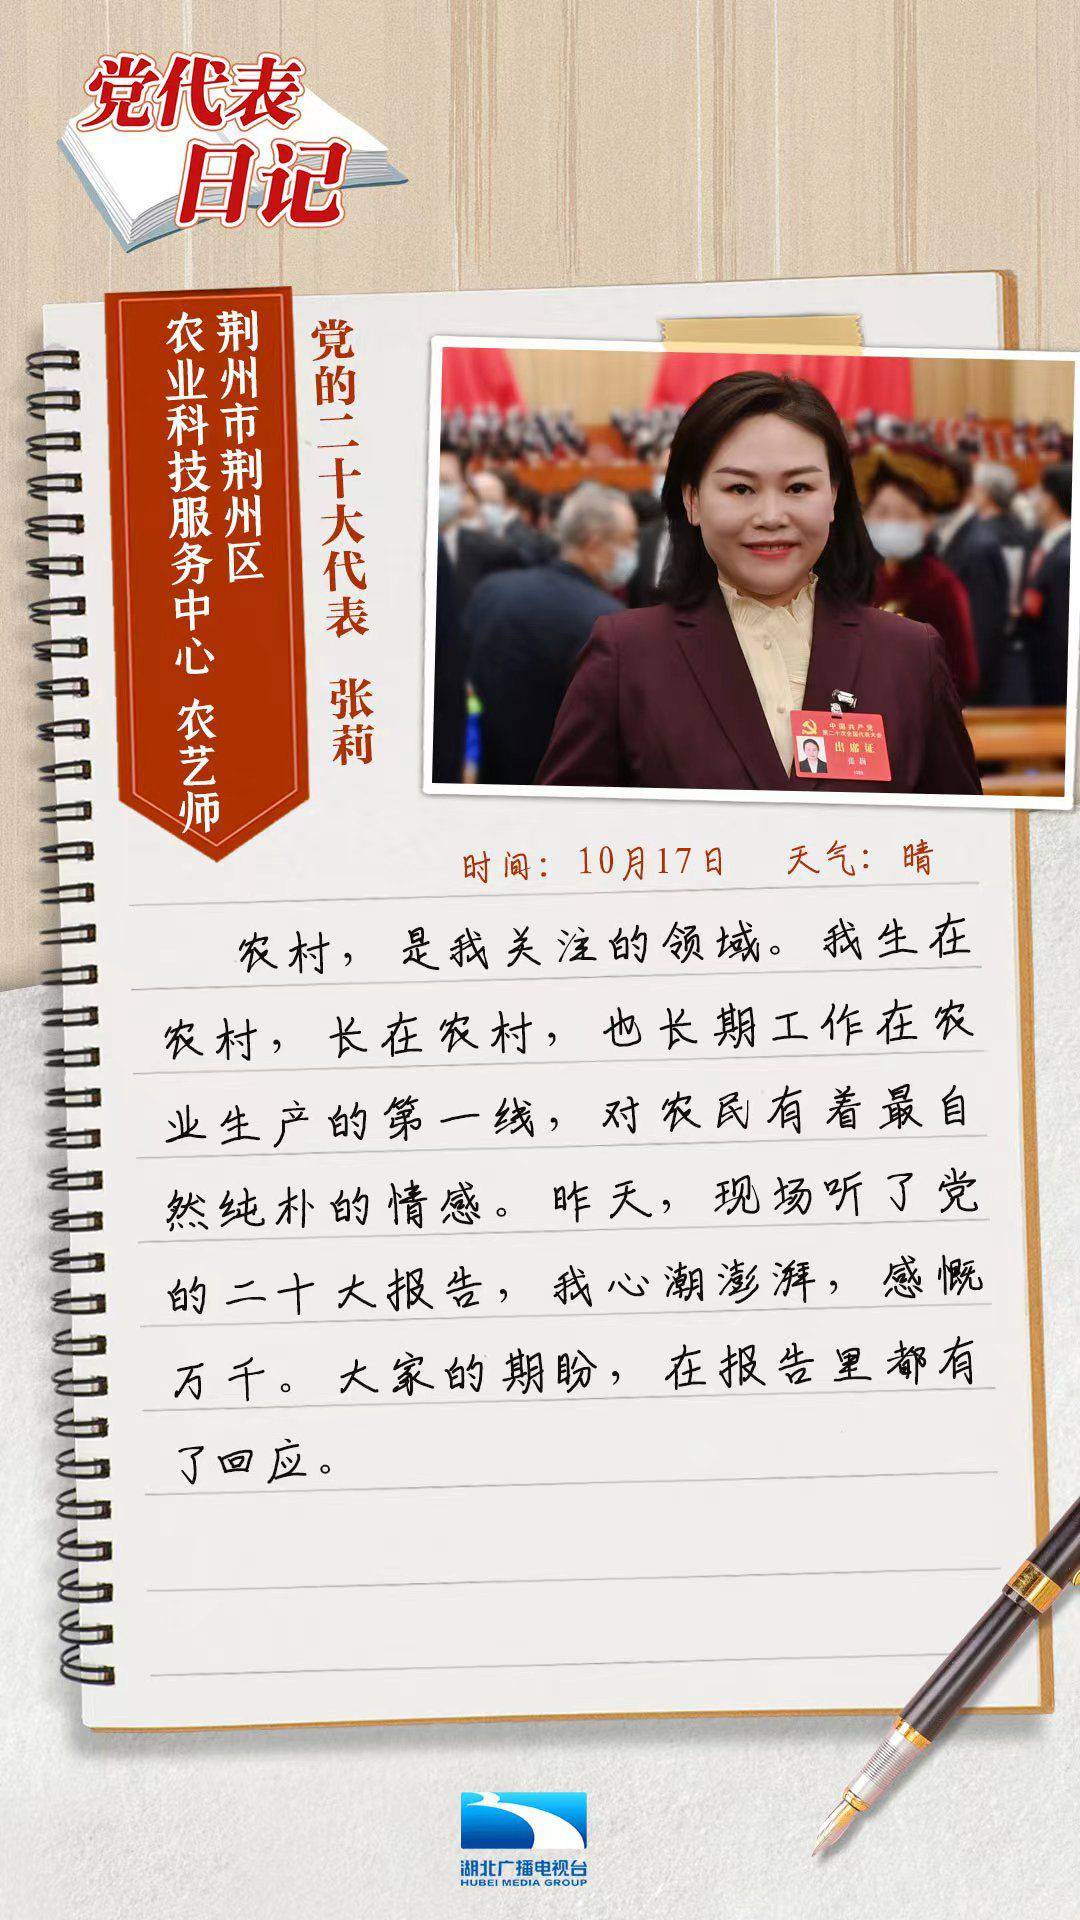 党代表
日记
荆州市荆州区
农业科技服务中心 农艺师
党的二十大代表 张莉
中国共产党
第二十次全国代表大会
出席证
张莉
时间：10月17日 天气：晴
农村，是我关注的领域。我生在
农村，长在农村，也长期工作在农
业生产的第一线，对农民有着最自
然纯朴的情感。昨天，现场听了党
的二十大报告，我心潮澎湃，感慨
万千。大家的期盼，在报告里都有
了回应。
湖北广播电视台
HUBEI MEDIA GROUP